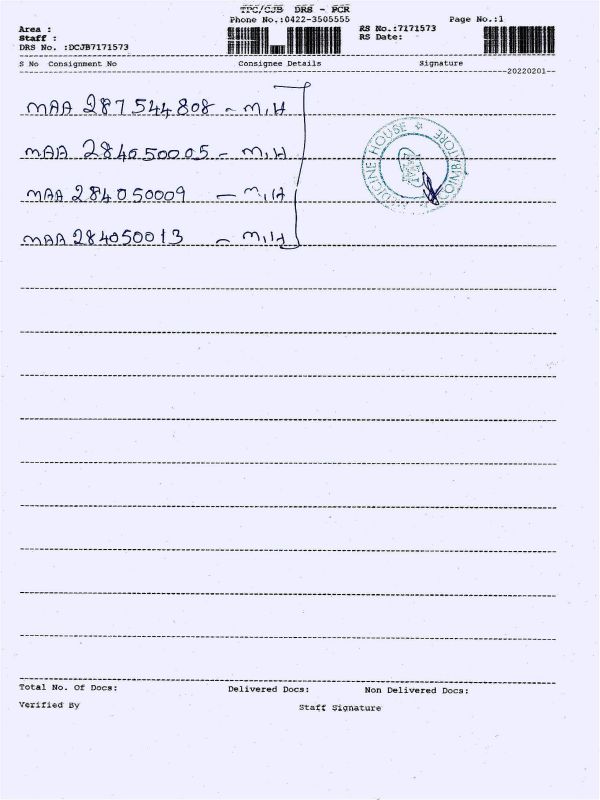 TPC/CJB DRS - PCR
Phone No.:0422-3505555 Page No.:1
Area : RS No.:7171573
Staff : RS Date:
DRS No. :DCJB7171573
S No Consignment No Consignee Details Signature
20220201
MAA 287544808 - M.H
MAA 284050005 - M.H
MAA 284050009 - M.H
MAA 284050013 - M.H
MEDICINE HOUSE ☆ COIMBATORE
Total No. Of Docs: Delivered Docs: Non Delivered Docs:
Verified By Staff Signature